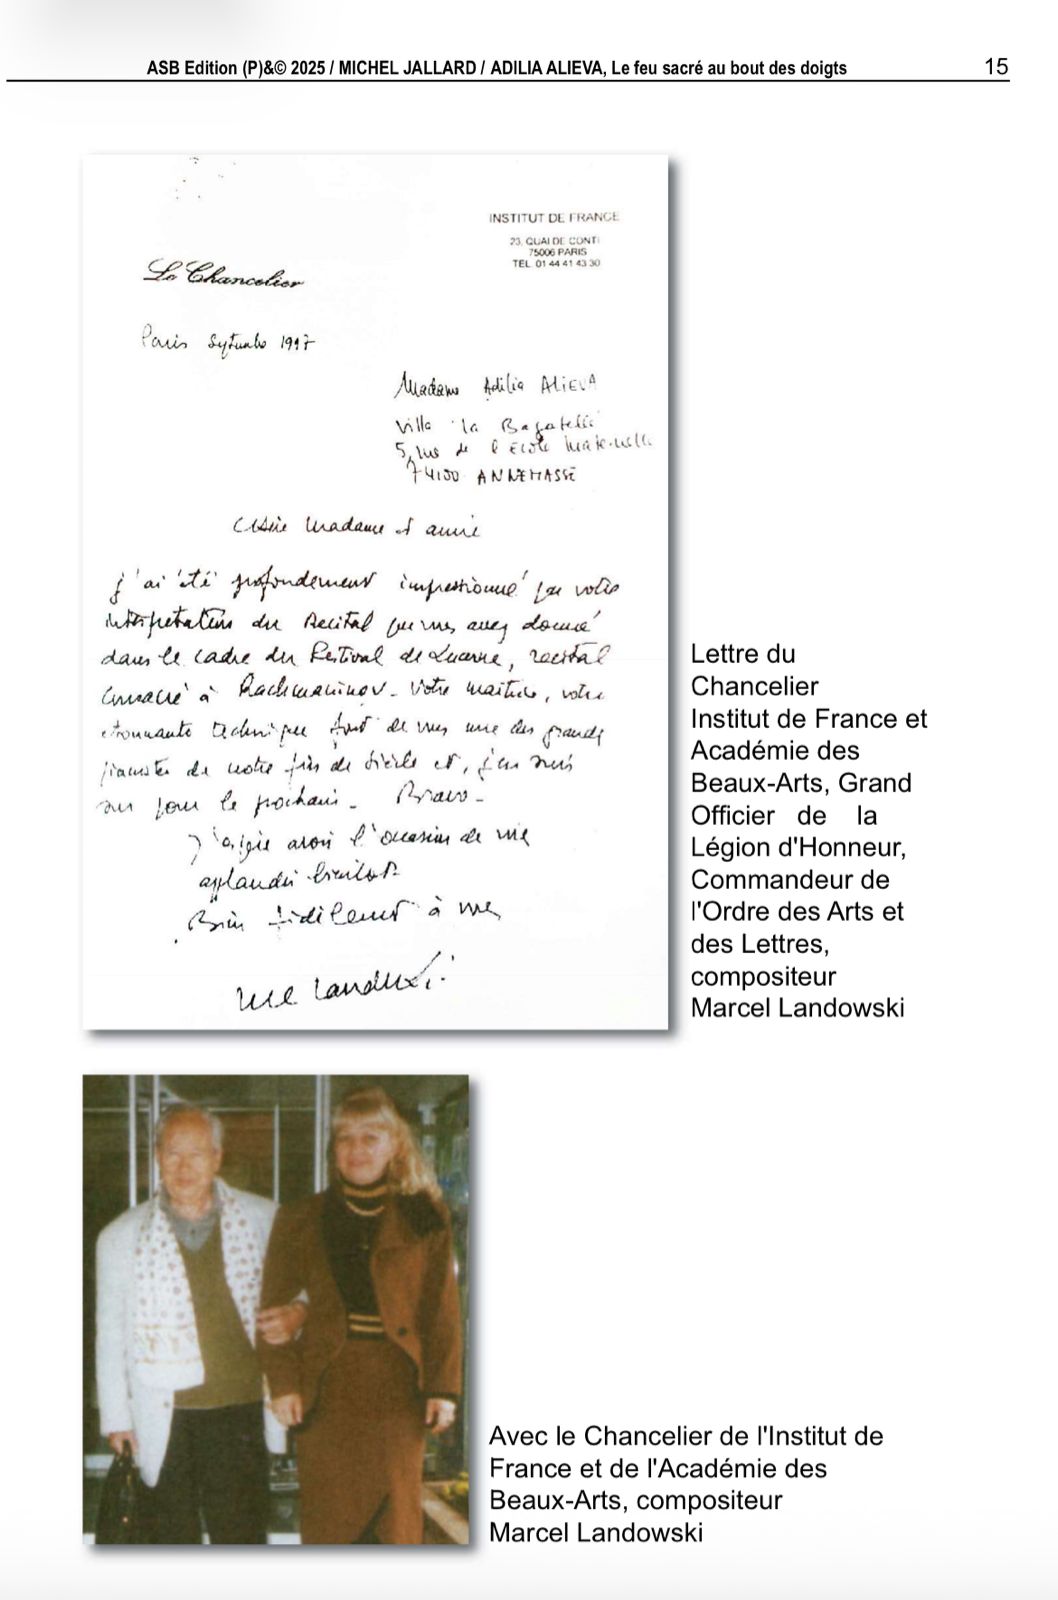 ASB Edition (P)&© 2025 / MICHEL JALLARD / ADILIA ALIEVA, Le feu sacré au bout des doigts 15
INSTITUT DE FRANCE
23, QUAI DE CONTI
75006 PARIS
TEL. 01 44 41 43 30
Le Chancelier
Paris Septembre 1997
Madame Adilia ALIEVA
Villa la Bagatelle
5, rue de l'Ecole Maternelle
74100 ANNEMASSE
Chère Madame et amie
j'ai été profondément impressionné par votre
interprétation du Récital que vous avez donné
dans le cadre du Festival de Lucerne, récital
consacré à Rachmaninov. Votre maitrise, votre
étonnante technique font de vous une des grandes
pianistes de notre fin de siècle et, j'en suis
sur pour le prochain. Bravo.
J'espère avoir l'occasion de vous
applaudir bientôt
Bien fidèlement à vous
Landowski
Lettre du
Chancelier
Institut de France et
Académie des
Beaux-Arts, Grand
Officier de la
Légion d'Honneur,
Commandeur de
l'Ordre des Arts et
des Lettres,
compositeur
Marcel Landowski
Avec le Chancelier de l'Institut de
France et de l'Académie des
Beaux-Arts, compositeur
Marcel Landowski